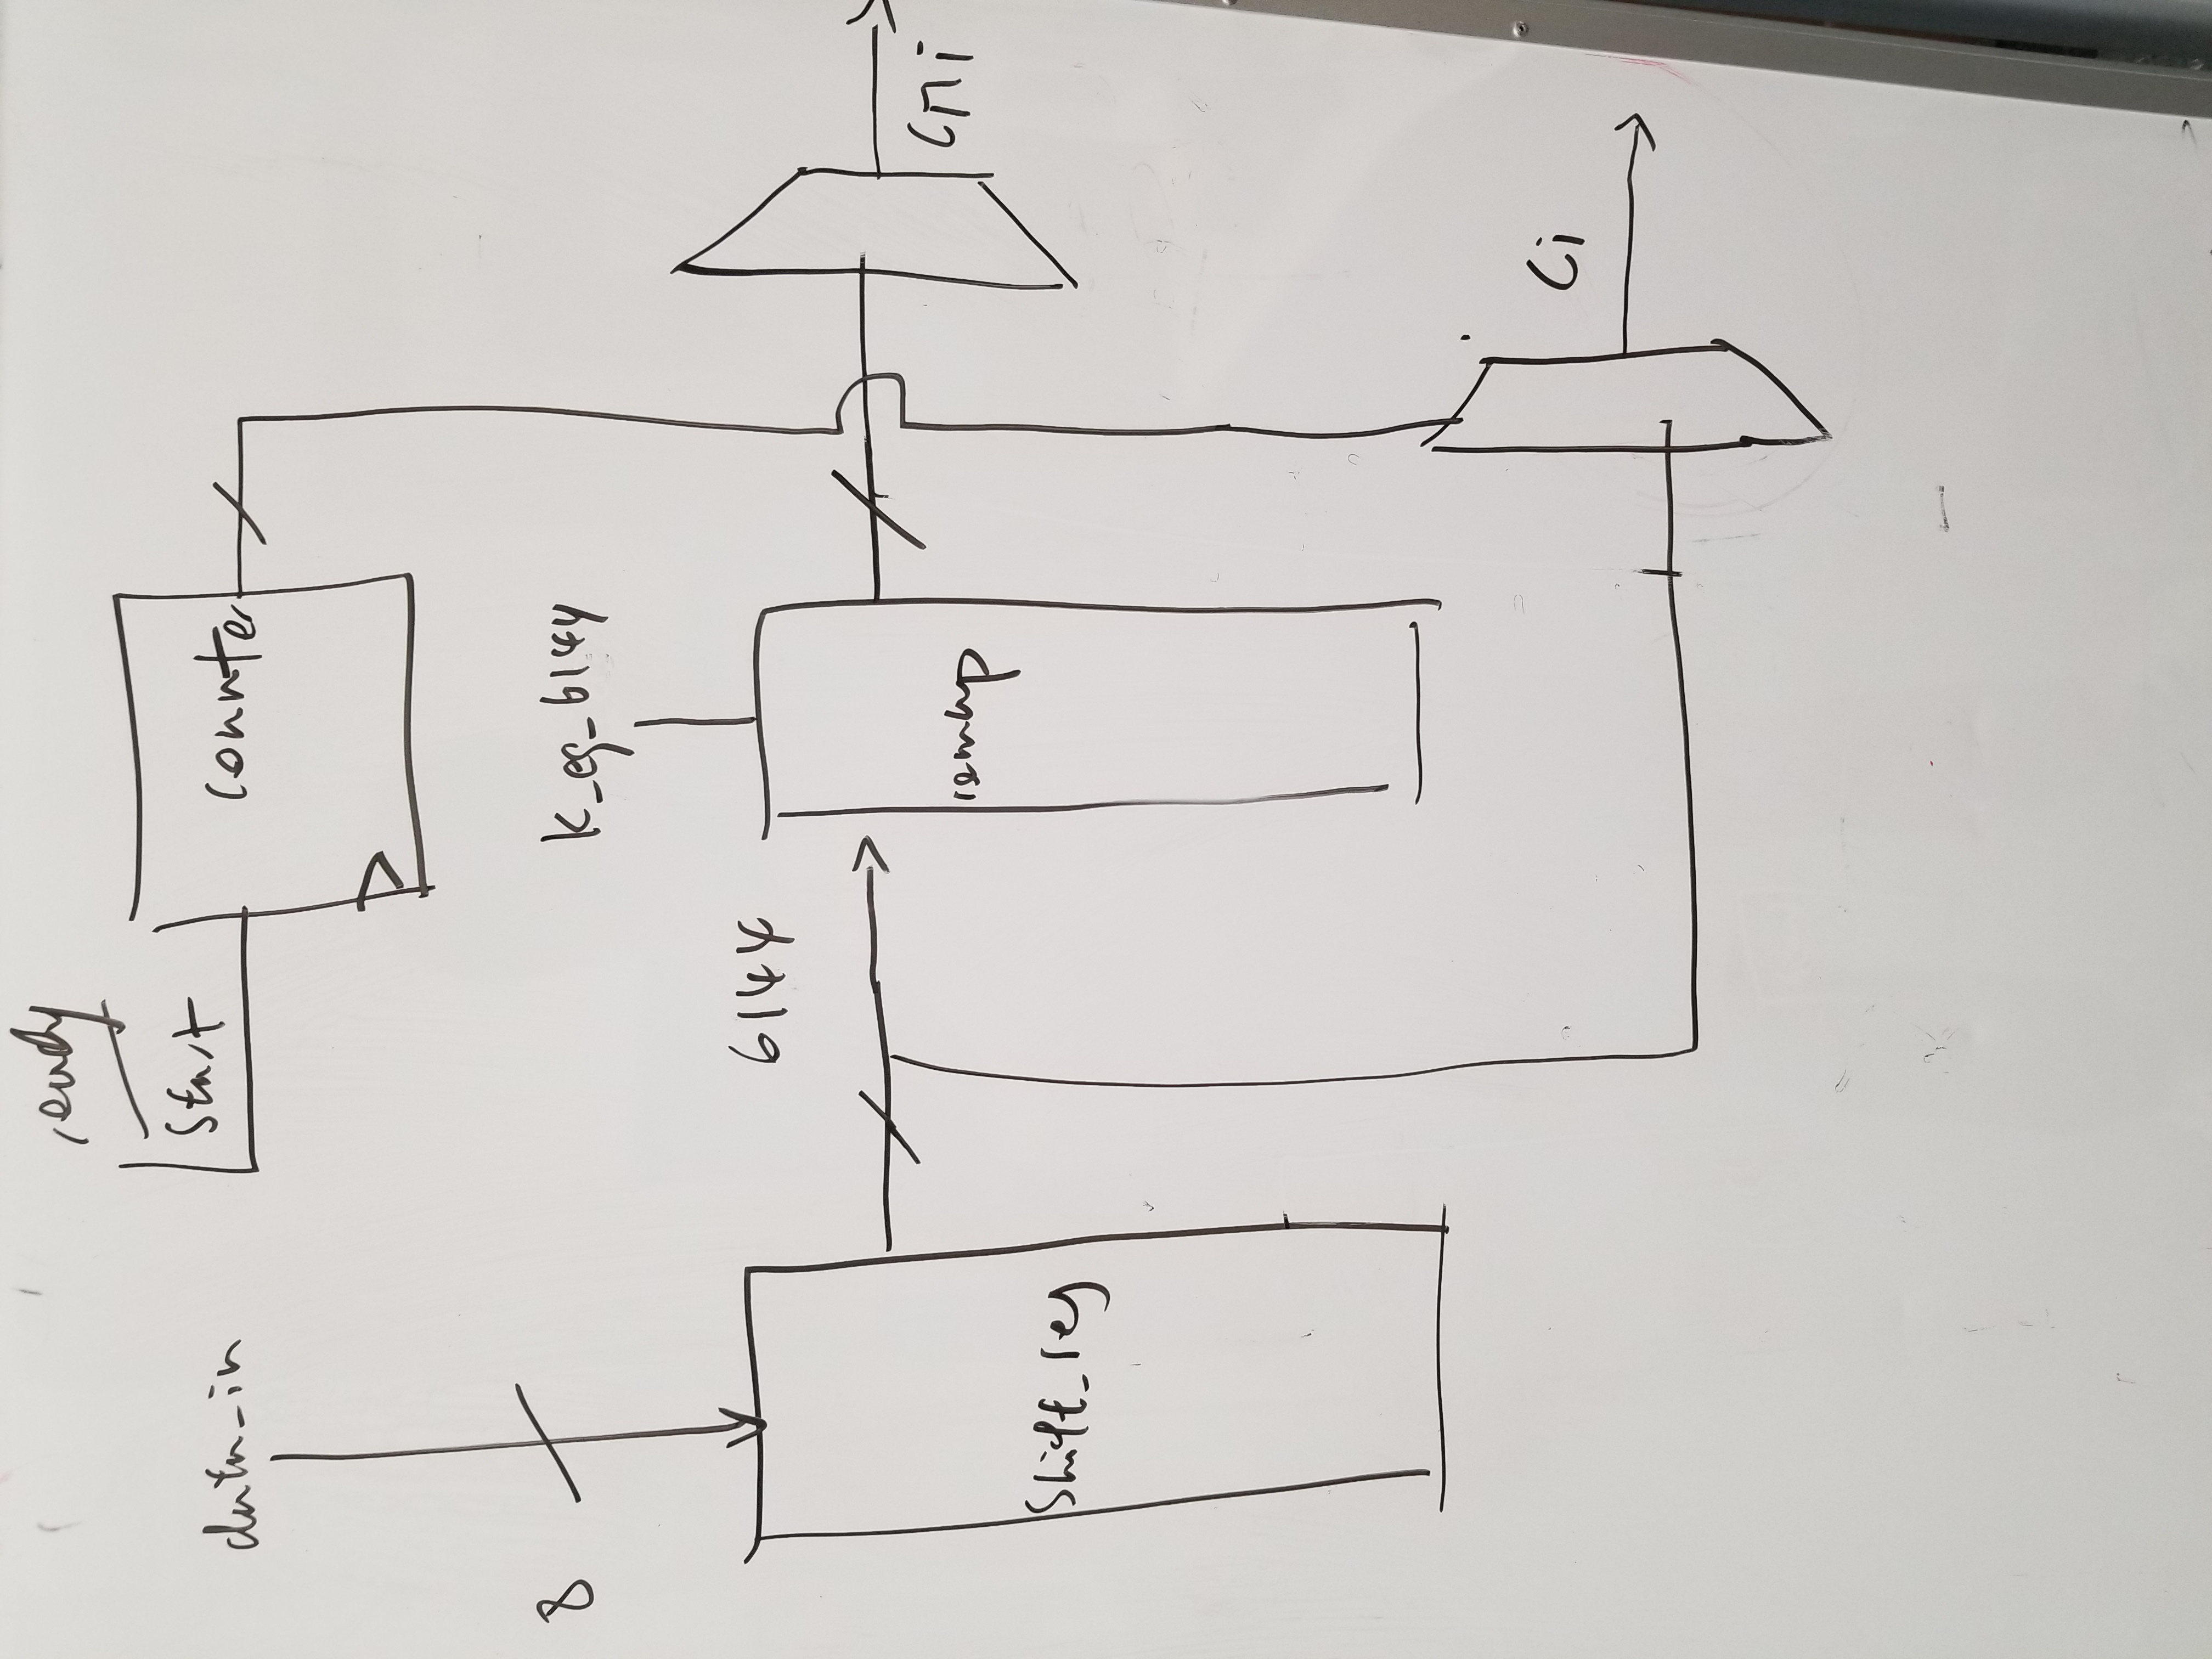 ready
start
counter
data_in
8
K_eq_6144
6144
remap
cπi
shift_reg
ci